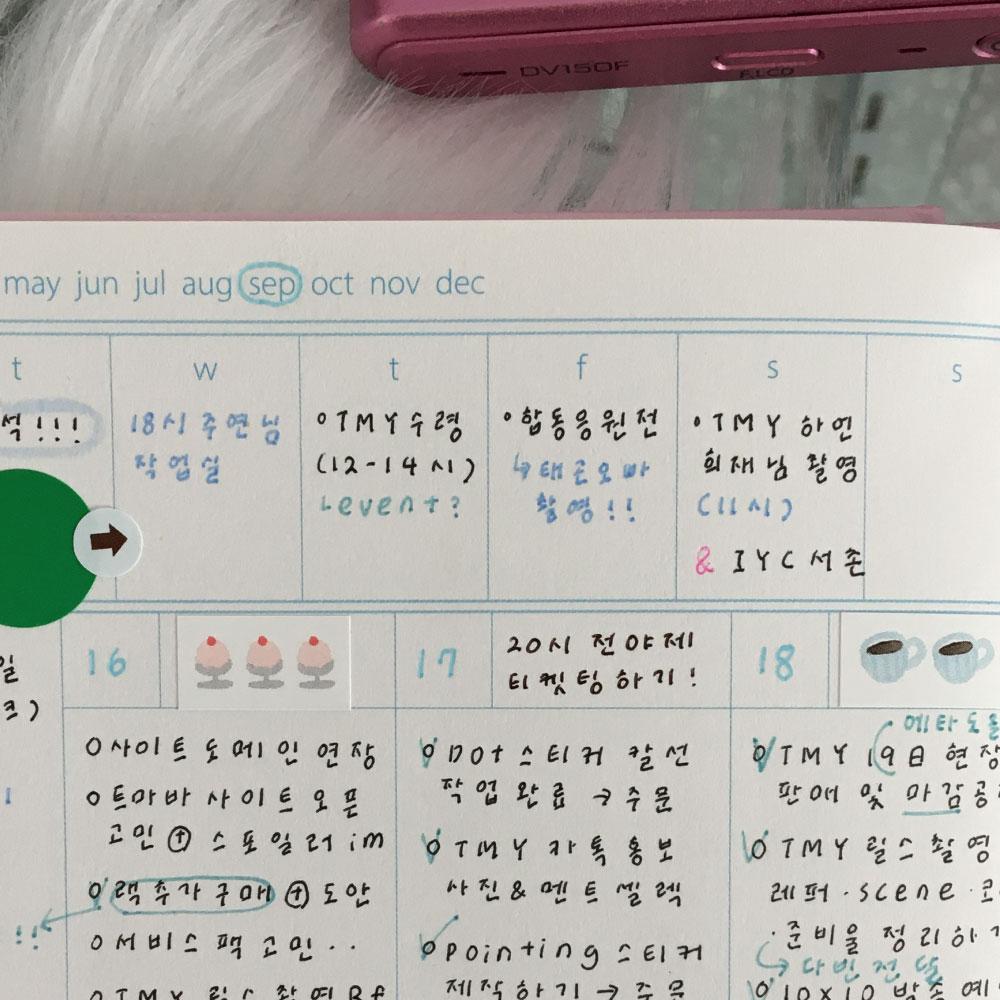 DV150F
F.LCD
may jun jul aug sep oct nov dec
t w t f s s
석!!!
18시 주연님
작업실
TMY 수령
(12-14시)
event?
합동응원전
↳태근오빠
촬영!!
TMY 하연
희재님 촬영
(11시)
& IYC 서촌
16
17
20시 전야제
티켓팅하기!
18
일
크)
사이트 도메인 연장
트마바 사이트 오픈
고민 ⊕ 스포일러 im
랙 추가 구매 ⊕ 도안
!!
서비스 팩 고민..
TMY 릴스 촬영 Rf
DOt 스티커 칼선
작업 완료 → 주문
TMY 카톡 홍보
사진 & 멘트 셀렉
pointing 스티커
제작하기 → 주문
에타 도
TMY 19日 현장
판매 및 마감공
TMY 릴스 촬영
레퍼·scene·코
·준비물 정리하기
↳다빈 전달
10x10 발송